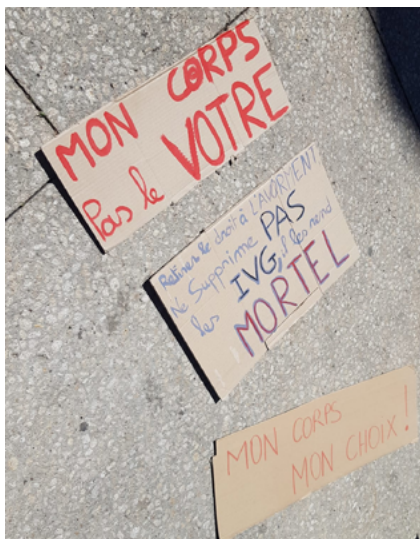 MON CORPS
Pas le VOTRE
Retirer le droit à L'AVORMENT
Ne Supprime PAS
les IVG, il les rend
MORTEL
MON CORPS
MON CHOIX !